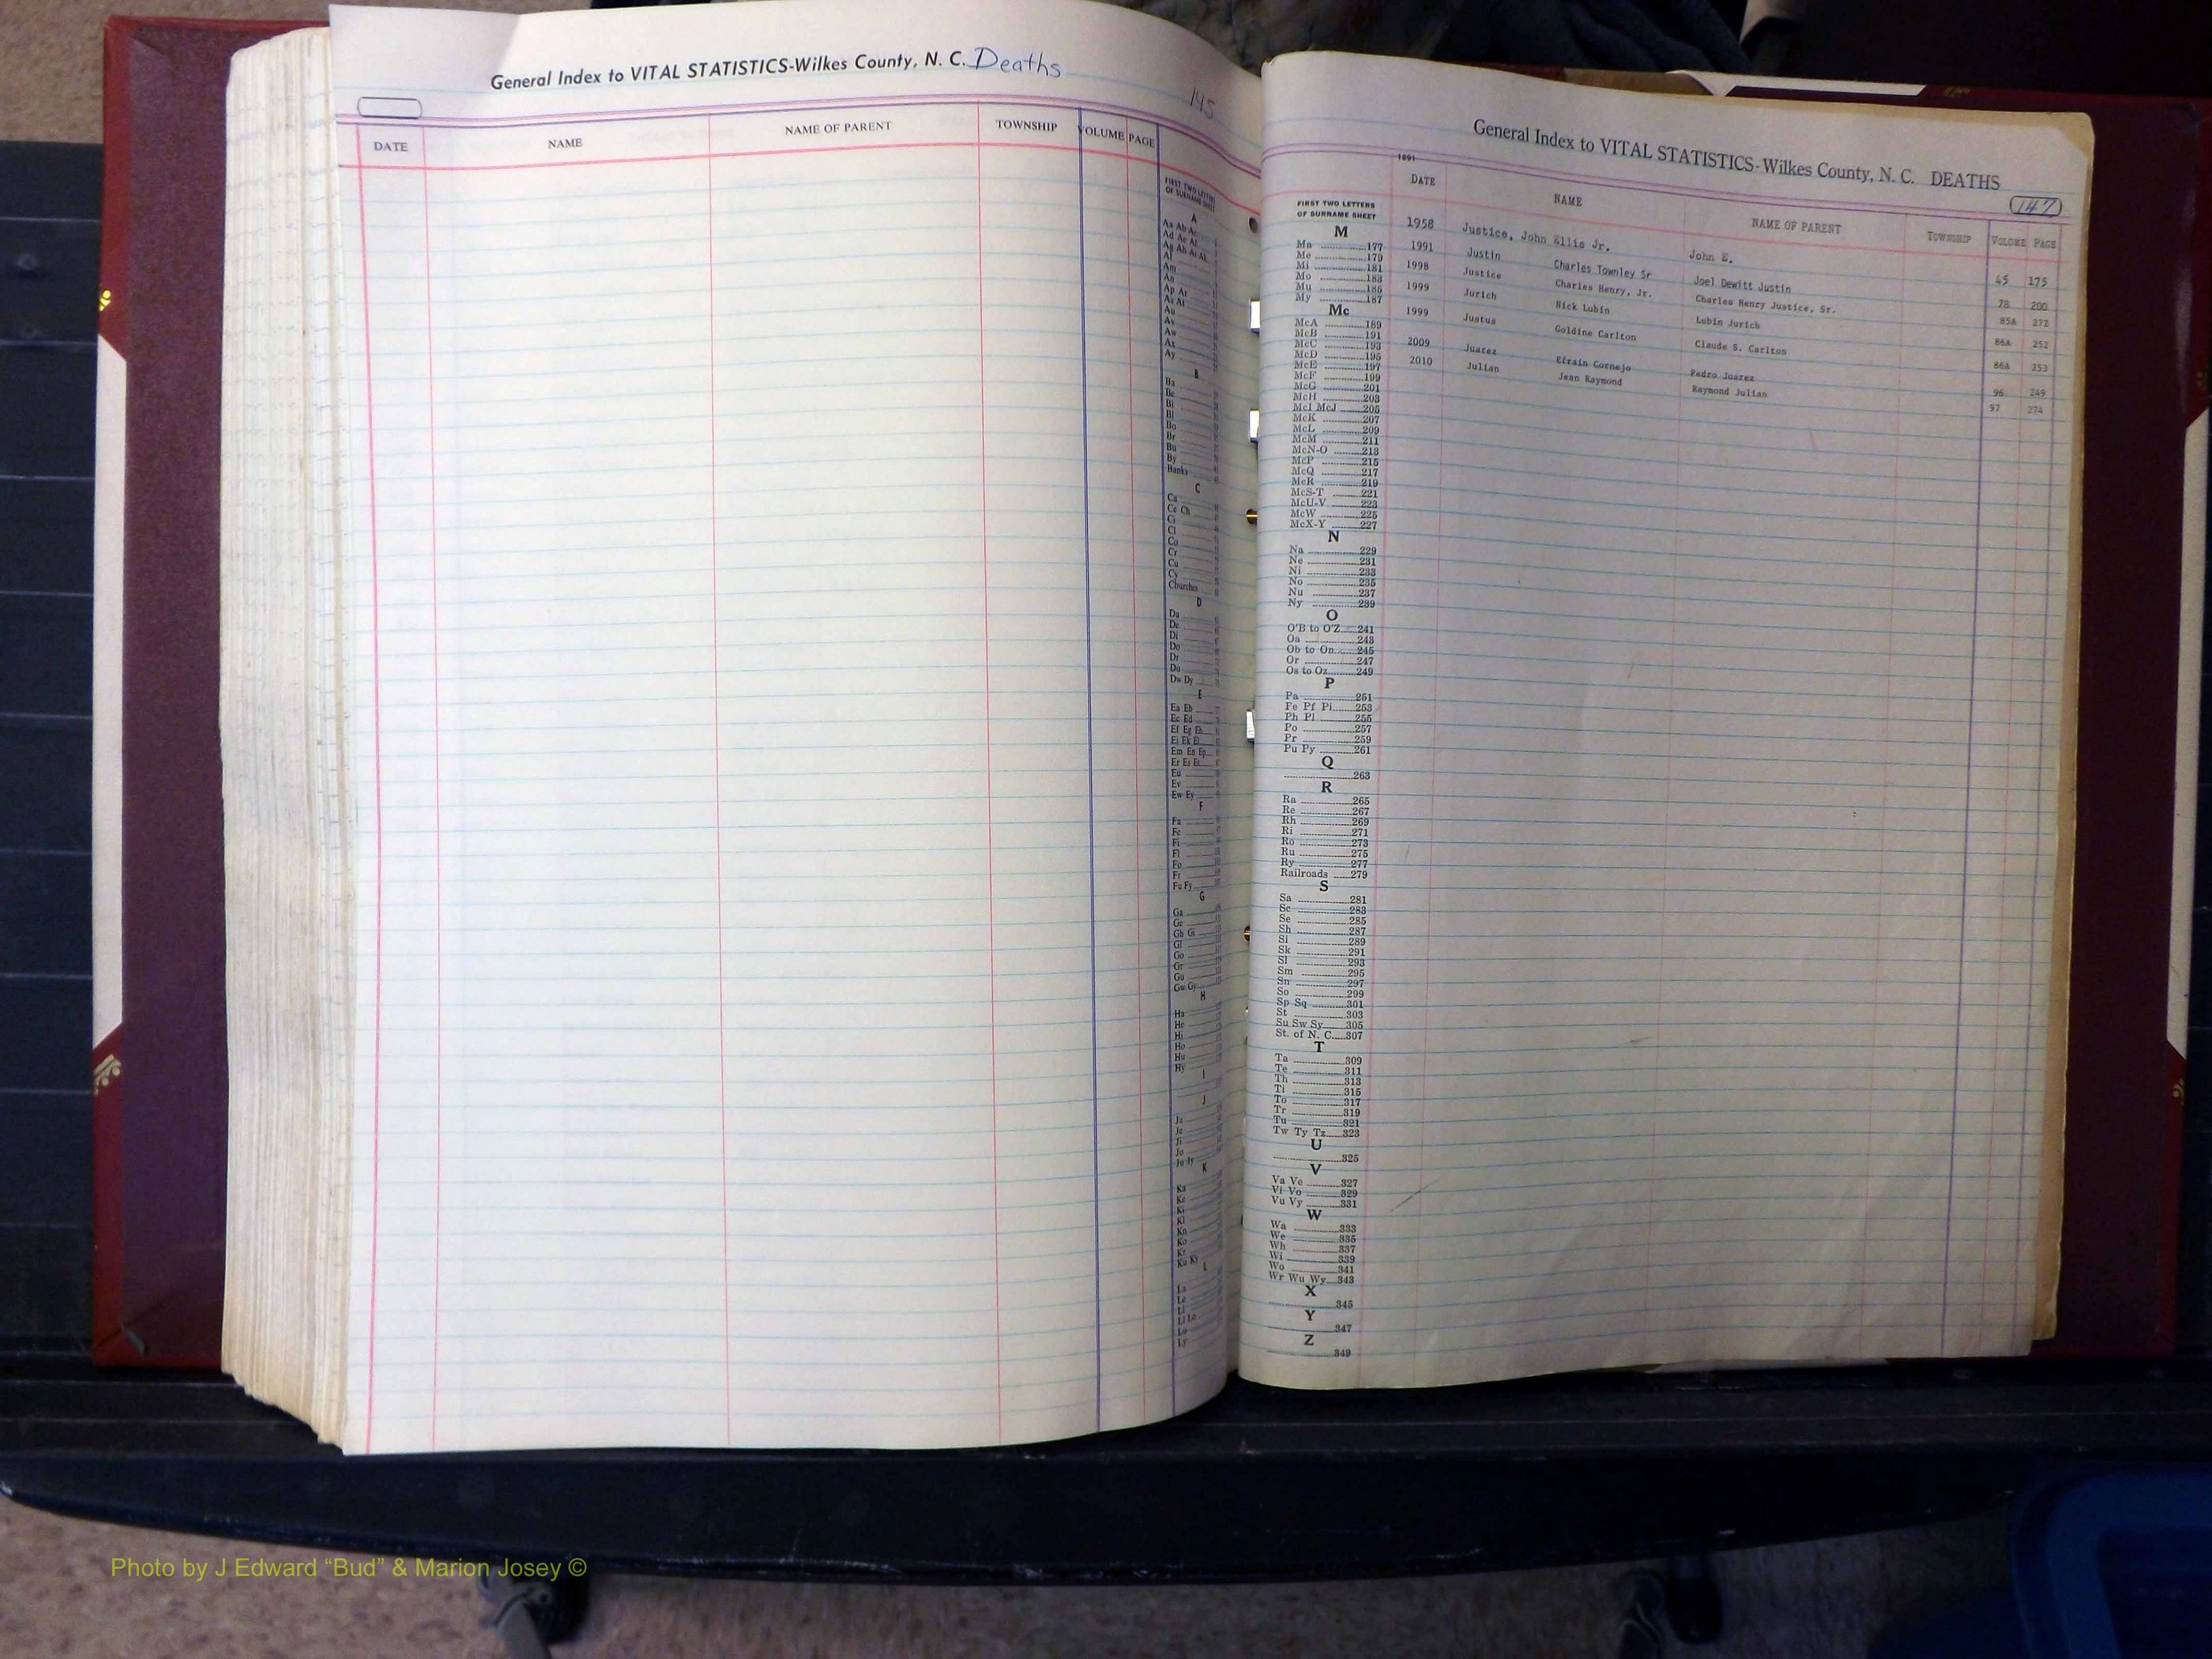 General Index to VITAL STATISTICS-Wilkes County, N. C. Deaths
145
DATE NAME NAME OF PARENT TOWNSHIP VOLUME PAGE
FIRST TWO LETTERS
OF SURNAME SHEET
A
Aa Ab Ac
Ad Ae Af
Ag Ah Ai Ak
Al
Am
An
Ap Ar
As At
Au
Av
Aw
Ax
Ay
B
Ba
Be
Bi
Bl
Bo
Br
Bu
By
Banks
C
Ca
Ce Ch
Ci
Cl
Co
Cr
Cu
Cy
Churches
D
Da
De
Di
Do
Dr
Du
Dw Dy
E
Ea Eb
Ec Ed
Ef Eg Eh
Ei Ek El
Em En Ep
Er Es Et
Eu
Ev
Ew Ey
F
Fa
Fe
Fi
Fl
Fo
Fr
Fu Fy
G
Ga
Ge
Gh Gi
Gl
Go
Gr
Gu
Gw Gy
H
Ha
He
Hi
Ho
Hu
Hy
I
J
Ja
Je
Ji
Jo
Ju Jy
K
Ka
Ke
Ki
Kl
Kn
Ko
Kr
Ku Ky
L
La
Le
Li
Ll Lo
Lu
Ly
General Index to VITAL STATISTICS-Wilkes County, N. C. DEATHS
147
1891
DATE NAME NAME OF PARENT TOWNSHIP VOLUME PAGE
1958 Justice, John Ellis Jr. John E. 45 175
1991 Justin Charles Townley Sr Joel Dewitt Justin 78 200
1998 Justice Charles Henry, Jr. Charles Henry Justice, Sr. 85A 272
1999 Jurich Nick Lubin Lubin Jurich 86A 252
1999 Justus Goldine Carlton Claude S. Carlton 86A 253
2009 Juarez Efrain Cornejo Pedro Juarez 96 249
2010 Julian Jean Raymond Raymond Julian 97 274
FIRST TWO LETTERS
OF SURNAME SHEET
M
Ma 177
Me 179
Mi 181
Mo 183
Mu 185
My 187
Mc
McA 189
McB 191
McC 193
McD 195
McE 197
McF 199
McG 201
McH 203
McI McJ 205
McK 207
McL 209
McM 211
McN-O 213
McP 215
McQ 217
McR 219
McS-T 221
McU-V 223
McW 225
McX-Y 227
N
Na 229
Ne 231
Ni 233
No 235
Nu 237
Ny 239
O
O'B to O'Z 241
Oa 243
Ob to On 245
Or 247
Os to Oz 249
P
Pa 251
Pe Pf Pi 253
Ph Pl 255
Po 257
Pr 259
Pu Py 261
Q
263
R
Ra 265
Re 267
Rh 269
Ri 271
Ro 273
Ru 275
Ry 277
Railroads 279
S
Sa 281
Sc 283
Se 285
Sh 287
Si 289
Sk 291
Sl 293
Sm 295
Sn 297
So 299
Sp Sq 301
St 303
Su Sw Sy 305
St. of N. C. 307
T
Ta 309
Te 311
Th 313
Ti 315
To 317
Tr 319
Tu 321
Tw Ty Tz 323
U
325
V
Va Ve 327
Vi Vo 329
Vu Vy 331
W
Wa 333
We 335
Wh 337
Wi 339
Wo 341
Wr Wu Wy 343
X
345
Y
347
Z
349
Photo by J Edward “Bud” & Marion Josey ©